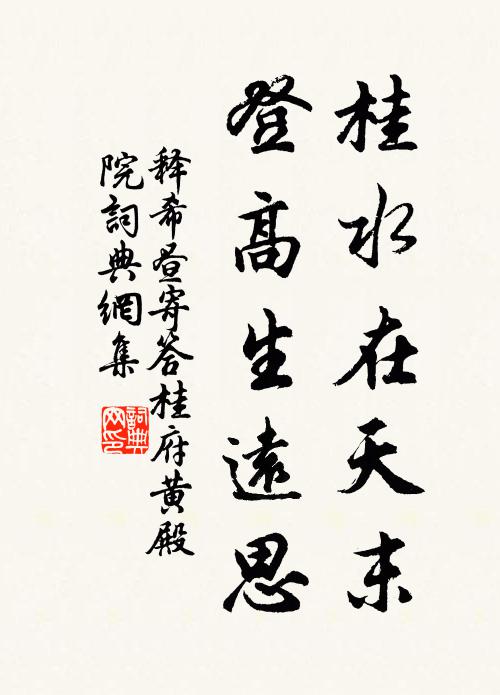 桂水在天末
登高生遠思
释希昼寄答桂府黄殿
院詞典網集
詞典
网印